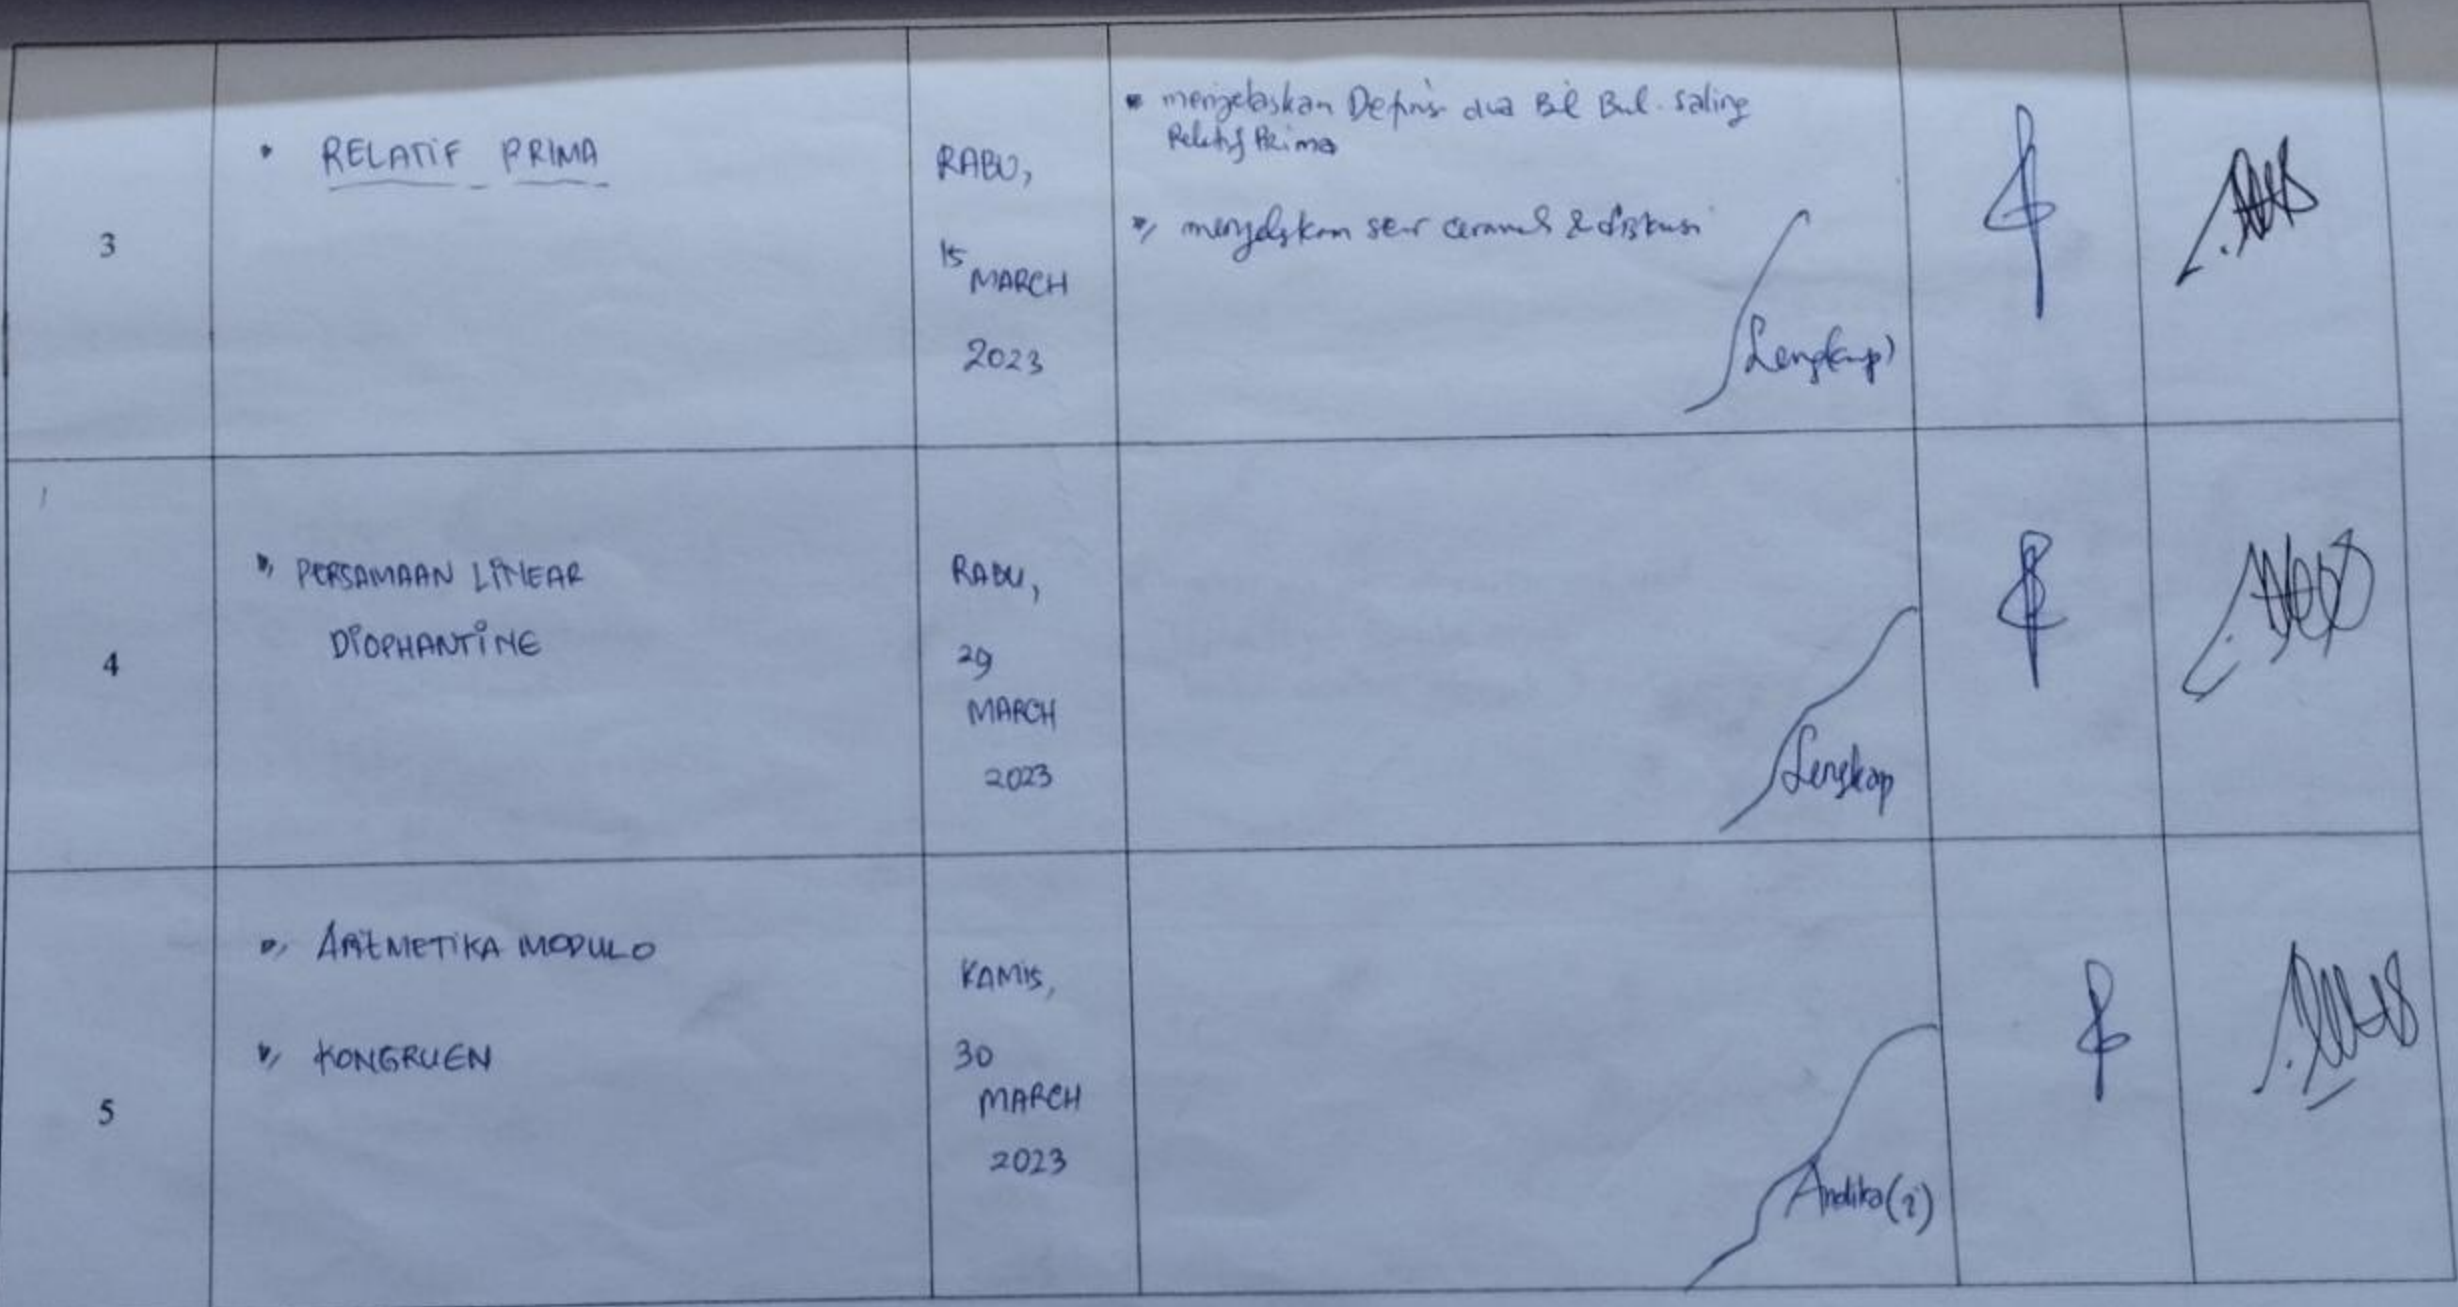 3
RELATIF PRIMA
RABU,
15
MARCH
2023
menjelaskan Definisi dua Bil Bul. saling
Relatif Prima
ceramah & diskusi
(Lengkap)
4
PERSAMAAN LINEAR
DIOPHANTINE
RABU,
29
MARCH
2023
Lengkap
5
ARITMETIKA MODULO
KONGRUEN
KAMIS,
30
MARCH
2023
Andika (i)